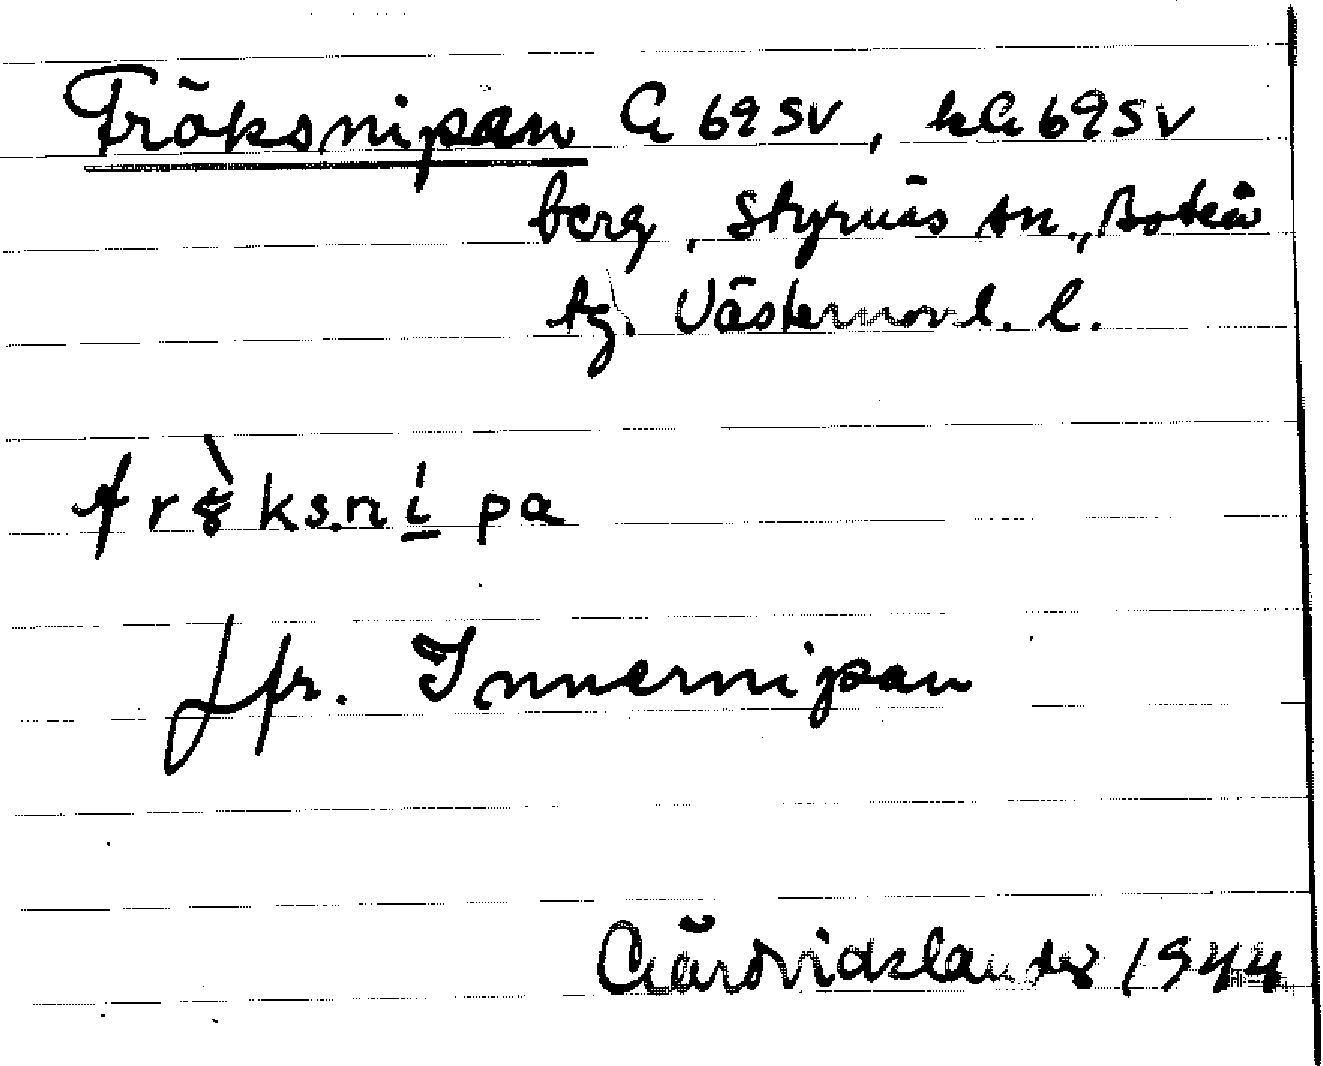 Fröksnipan G 69 SV, kG 69 SV
berg, Styrnäs sn., Boteå
tg. Västernorrl. l.
frö̀ksnípa
Jfr. Innernipan
1944